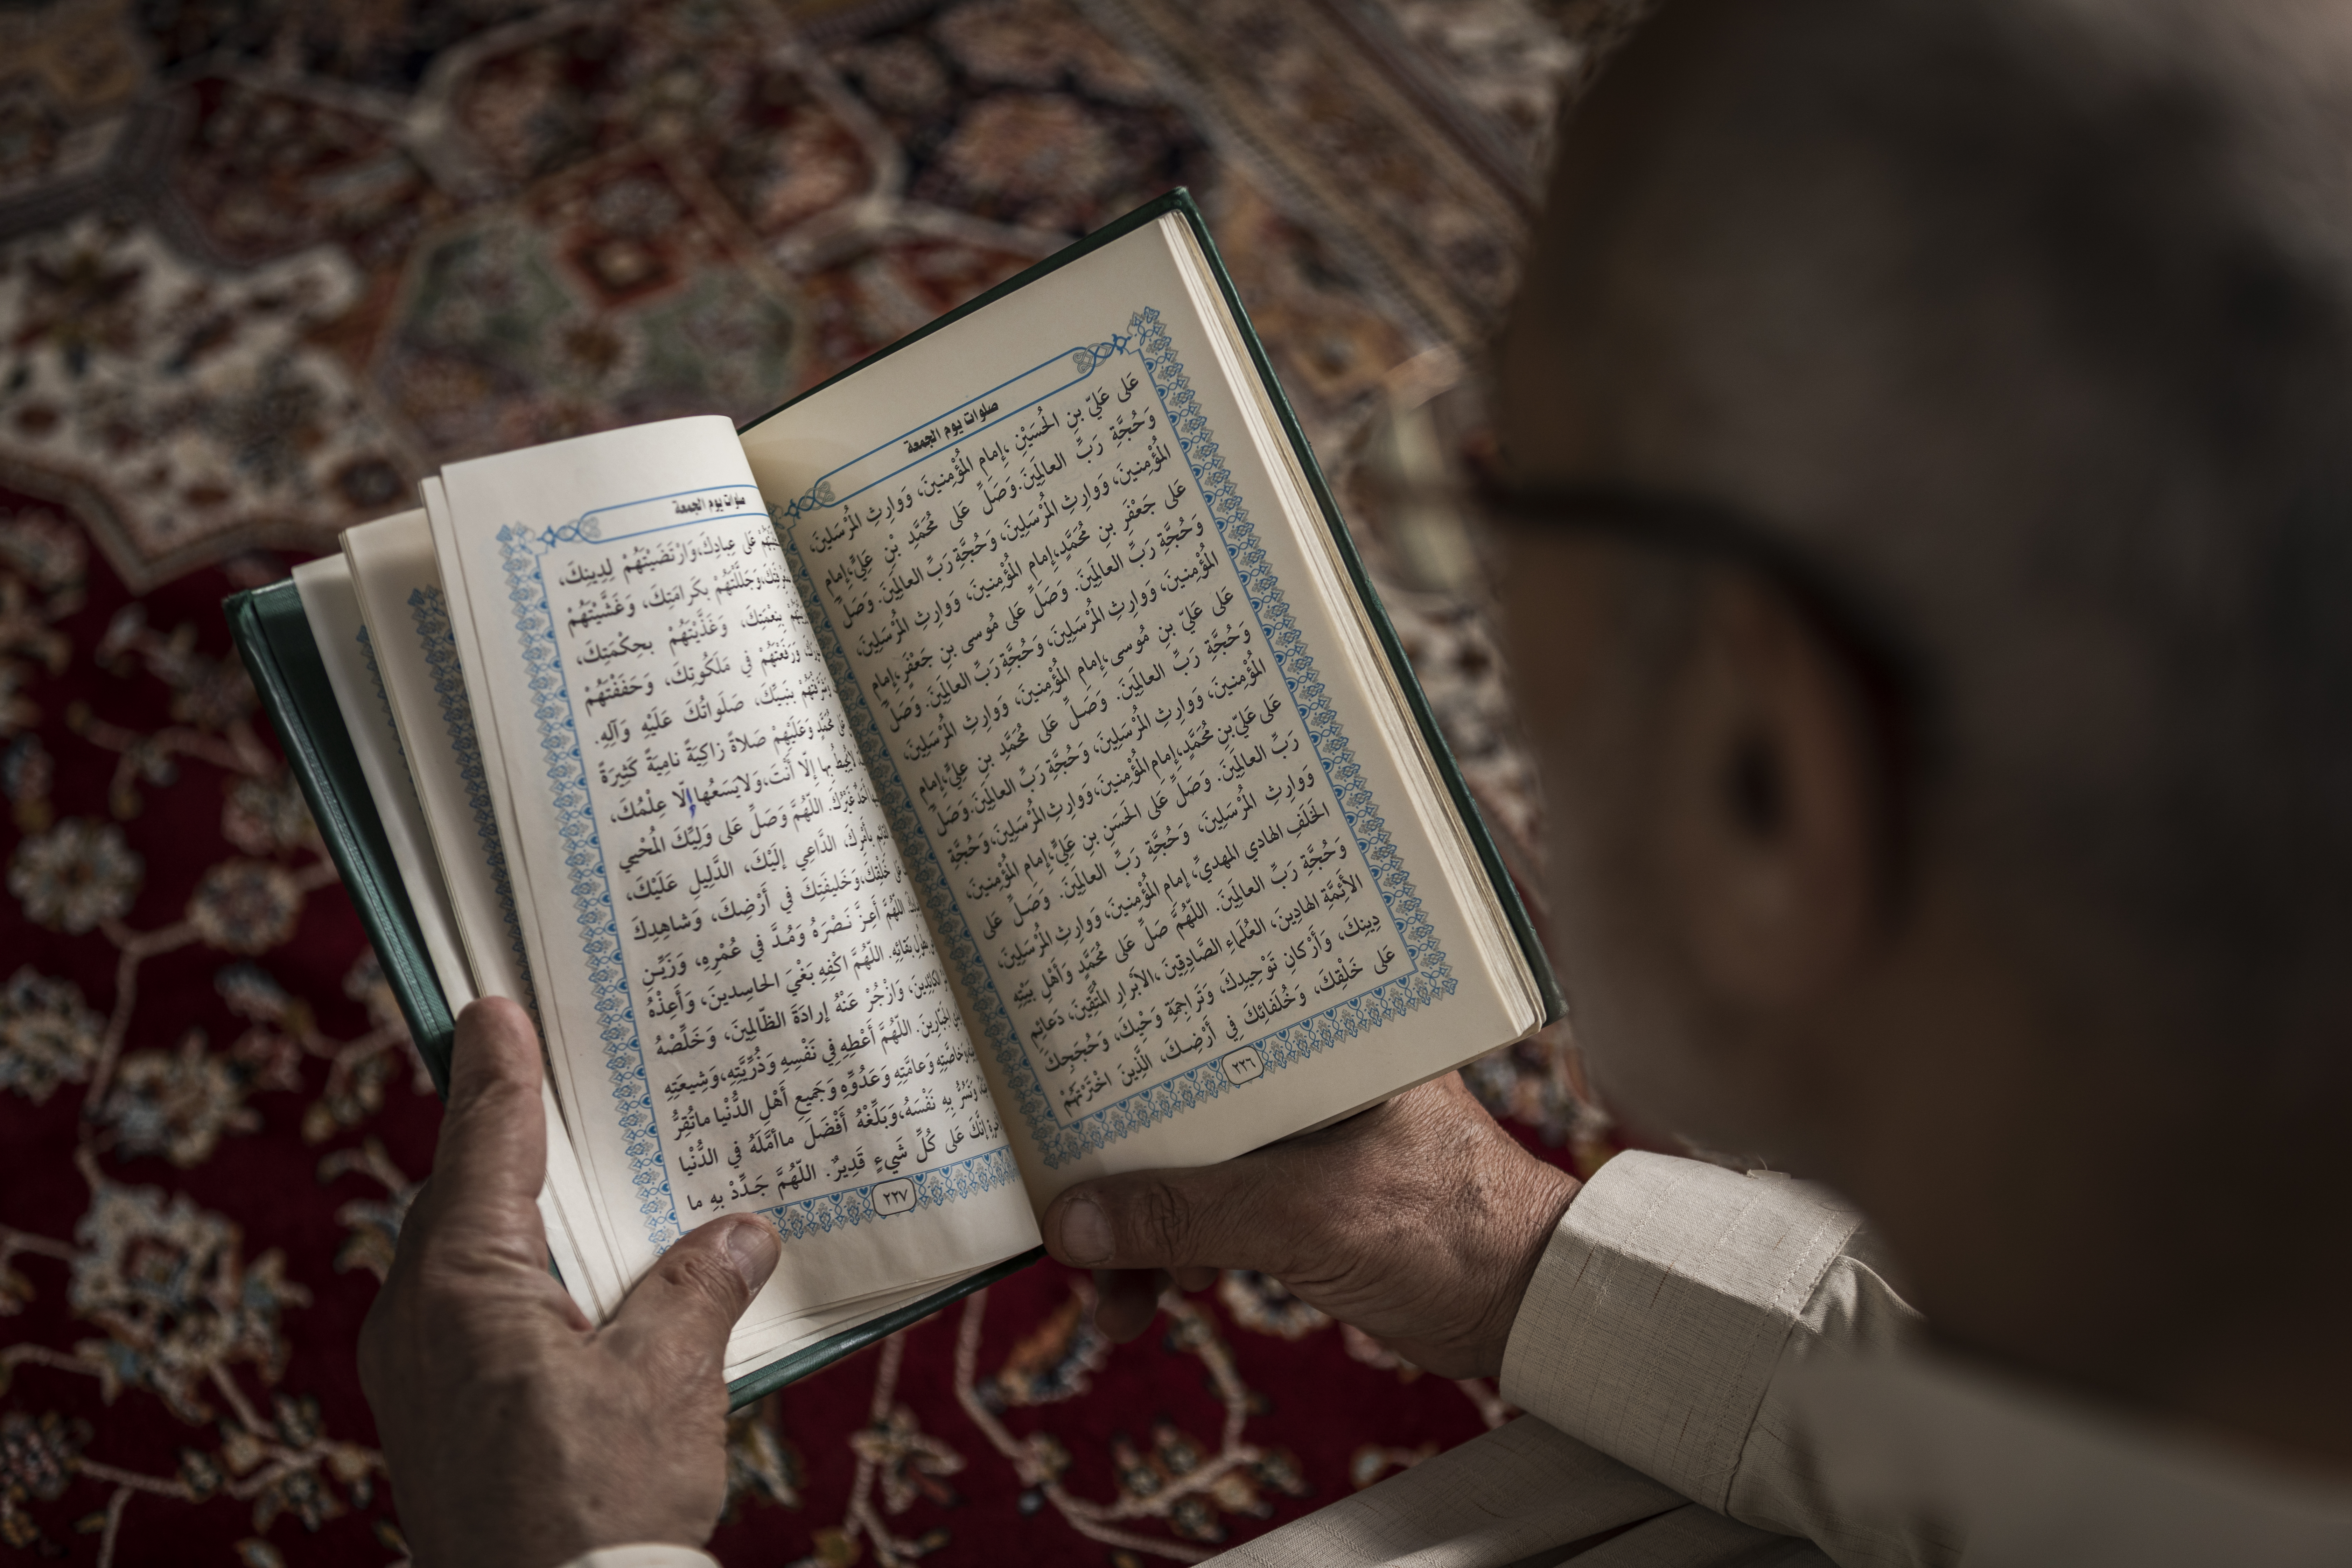 صلوات يوم الجمعة
عَلى عَلِيِّ بنِ الحُسَيْنِ ،إمامِ المُؤْمِنينَ، وَوارِثِ المُرْسَلينَ،
وَحُجَّةِ رَبِّ العالَمِينَ.وَصَلِّ عَلى مُحَمَّدِ بْنِ عَلِيٍّ،إمامِ
المُؤْمِنينَ، وَوارِثِ المُرْسَلِينَ، وَحُجَّةِ رَبِّ العالَمِينَ. وَصَلِّ
عَلى جَعْفَرِ بنِ مُحَمَّدٍ،إمامِ المُؤْمِنينَ، وَوارِثِ المُرْسَلِينَ،
وَحُجَّةِ رَبِّ العالَمِينَ. وَصَلِّ عَلى مُوسى بنِ جَعْفَرٍ،إمامِ
المُؤْمِنينَ، وَوارِثِ المُرْسَلِينَ، وَحُجَّةِ رَبِّ العالَمِينَ. وَصَلِّ
عَلى عَلِيِّ بنِ مُوسى،إمامِ المُؤْمِنينَ، وَوارِثِ المُرْسَلِينَ،
وَحُجَّةِ رَبِّ العالَمِينَ. وَصَلِّ عَلى مُحَمَّدِ بنِ عَلِيٍّ،إمامِ
المُؤْمِنينَ، وَوارِثِ المُرْسَلِينَ، وَحُجَّةِ رَبِّ العالَمِينَ.وَصَلِّ
عَلى عَلِيِّ بنِ مُحَمَّدٍ،إمامِ المُؤْمِنينَ، وَوارِثِ المُرْسَلِينَ،وَحُجَّةِ
رَبِّ العالَمِينَ. وَصَلِّ عَلى الحَسَنِ بنِ عَلِيٍّ،إمامِ المُؤْمِنينَ،
وَوارِثِ المُرْسَلِينَ، وَحُجَّةِ رَبِّ العالَمِينَ. وَصَلِّ عَلى
الخَلَفِ الهادي المهديِّ، إمامِ المُؤْمِنينَ، وَوارِثِ المُرْسَلِينَ،
وَحُجَّةِ رَبِّ العالَمِينَ. اللّهُمَّ صَلِّ عَلى مُحَمَّدٍ وَأهْلِ بَيْتِهِ
الأئِمَّةِ الهادِينَ، العُلَماءِ الصَّادِقِينَ ،الأبْرارِ المُتَّقِينَ، دَعائِمِ
دِينِكَ، وَأرْكانِ تَوْحِيدِكَ، وَتَراجِمَةِ وَحْيِكَ، وَحُجَجِكَ
عَلى خَلْقِكَ، وَخُلَفائِكَ فِي أَرْضِكَ، الَّذِينَ اخْتَرْتَهُمْ
٢٢٦
صلوات يوم الجمعة
عَلى عِبادِكَ،وَارْتَضَيْتَهُمْ لِدِينِكَ،
وَجَلَّلْتَهُمْ بِكَرامَتِكَ، وَغَشَّيْتَهُمْ
بِنِعْمَتِكَ، وَغَذَّيْتَهُمْ بِحِكْمَتِكَ،
وَرَفَعْتَهُمْ في مَلَكُوتِكَ، وَحَفَفْتَهُمْ
بِنَبِيِّكَ، صَلَواتُكَ عَلَيْهِ وَآلِهِ.
مُحَمَّدٍ وَعَلَيْهِمْ صَلاةً زاكِيَةً نامِيَةً كَثِيرَةً
بِها إلّا أنْتَ،وَلايَسَعُها إلّا عِلْمُكَ،
أحَدٌ غَيْرُكَ. اللّهُمَّ وَصَلِّ عَلى وَلِيِّكَ المُحْيِي
بِأمْرِكَ، الدَّاعِي إلَيْكَ، الدَّلِيلِ عَلَيْكَ،
خَلْقِكَ،وَخَلِيفَتِكَ في أَرْضِكَ، وَشاهِدِكَ
اللّهُمَّ أعِزَّ نَصْرَهُ وَمُدَّ في عُمْرِهِ، وَزَيِّنِ
بَقائِهِ. اللّهُمَّ اكْفِهِ بَغْيَ الحاسِدينَ، وَأعِذْهُ
الكائِدِينَ، وَازْجُرْ عَنْهُ إرادَةَ الظّالِمِينَ، وَخَلِّصْهُ
الجَبّارِينَ. اللّهُمَّ أعْطِهِ فِي نَفْسِهِ وَذُرِّيَّتِهِ،وَشِيعَتِهِ
وَخاصَّتِهِ وَعامَّتِهِ وَعَدُوِّهِ وَجَمِيعِ أهْلِ الدُّنْيا ماتُقِرُّ
وَتَسُرُّ بِهِ نَفْسَهُ،وَبَلِّغْهُ أَفْضَلَ ماأمَّلَهُ فِي الدُّنْيا
إنَّكَ عَلى كُلِّ شَيءٍ قَدِيرٌ. اللّهُمَّ جَدِّدْ بِهِ ما
٢٢٧